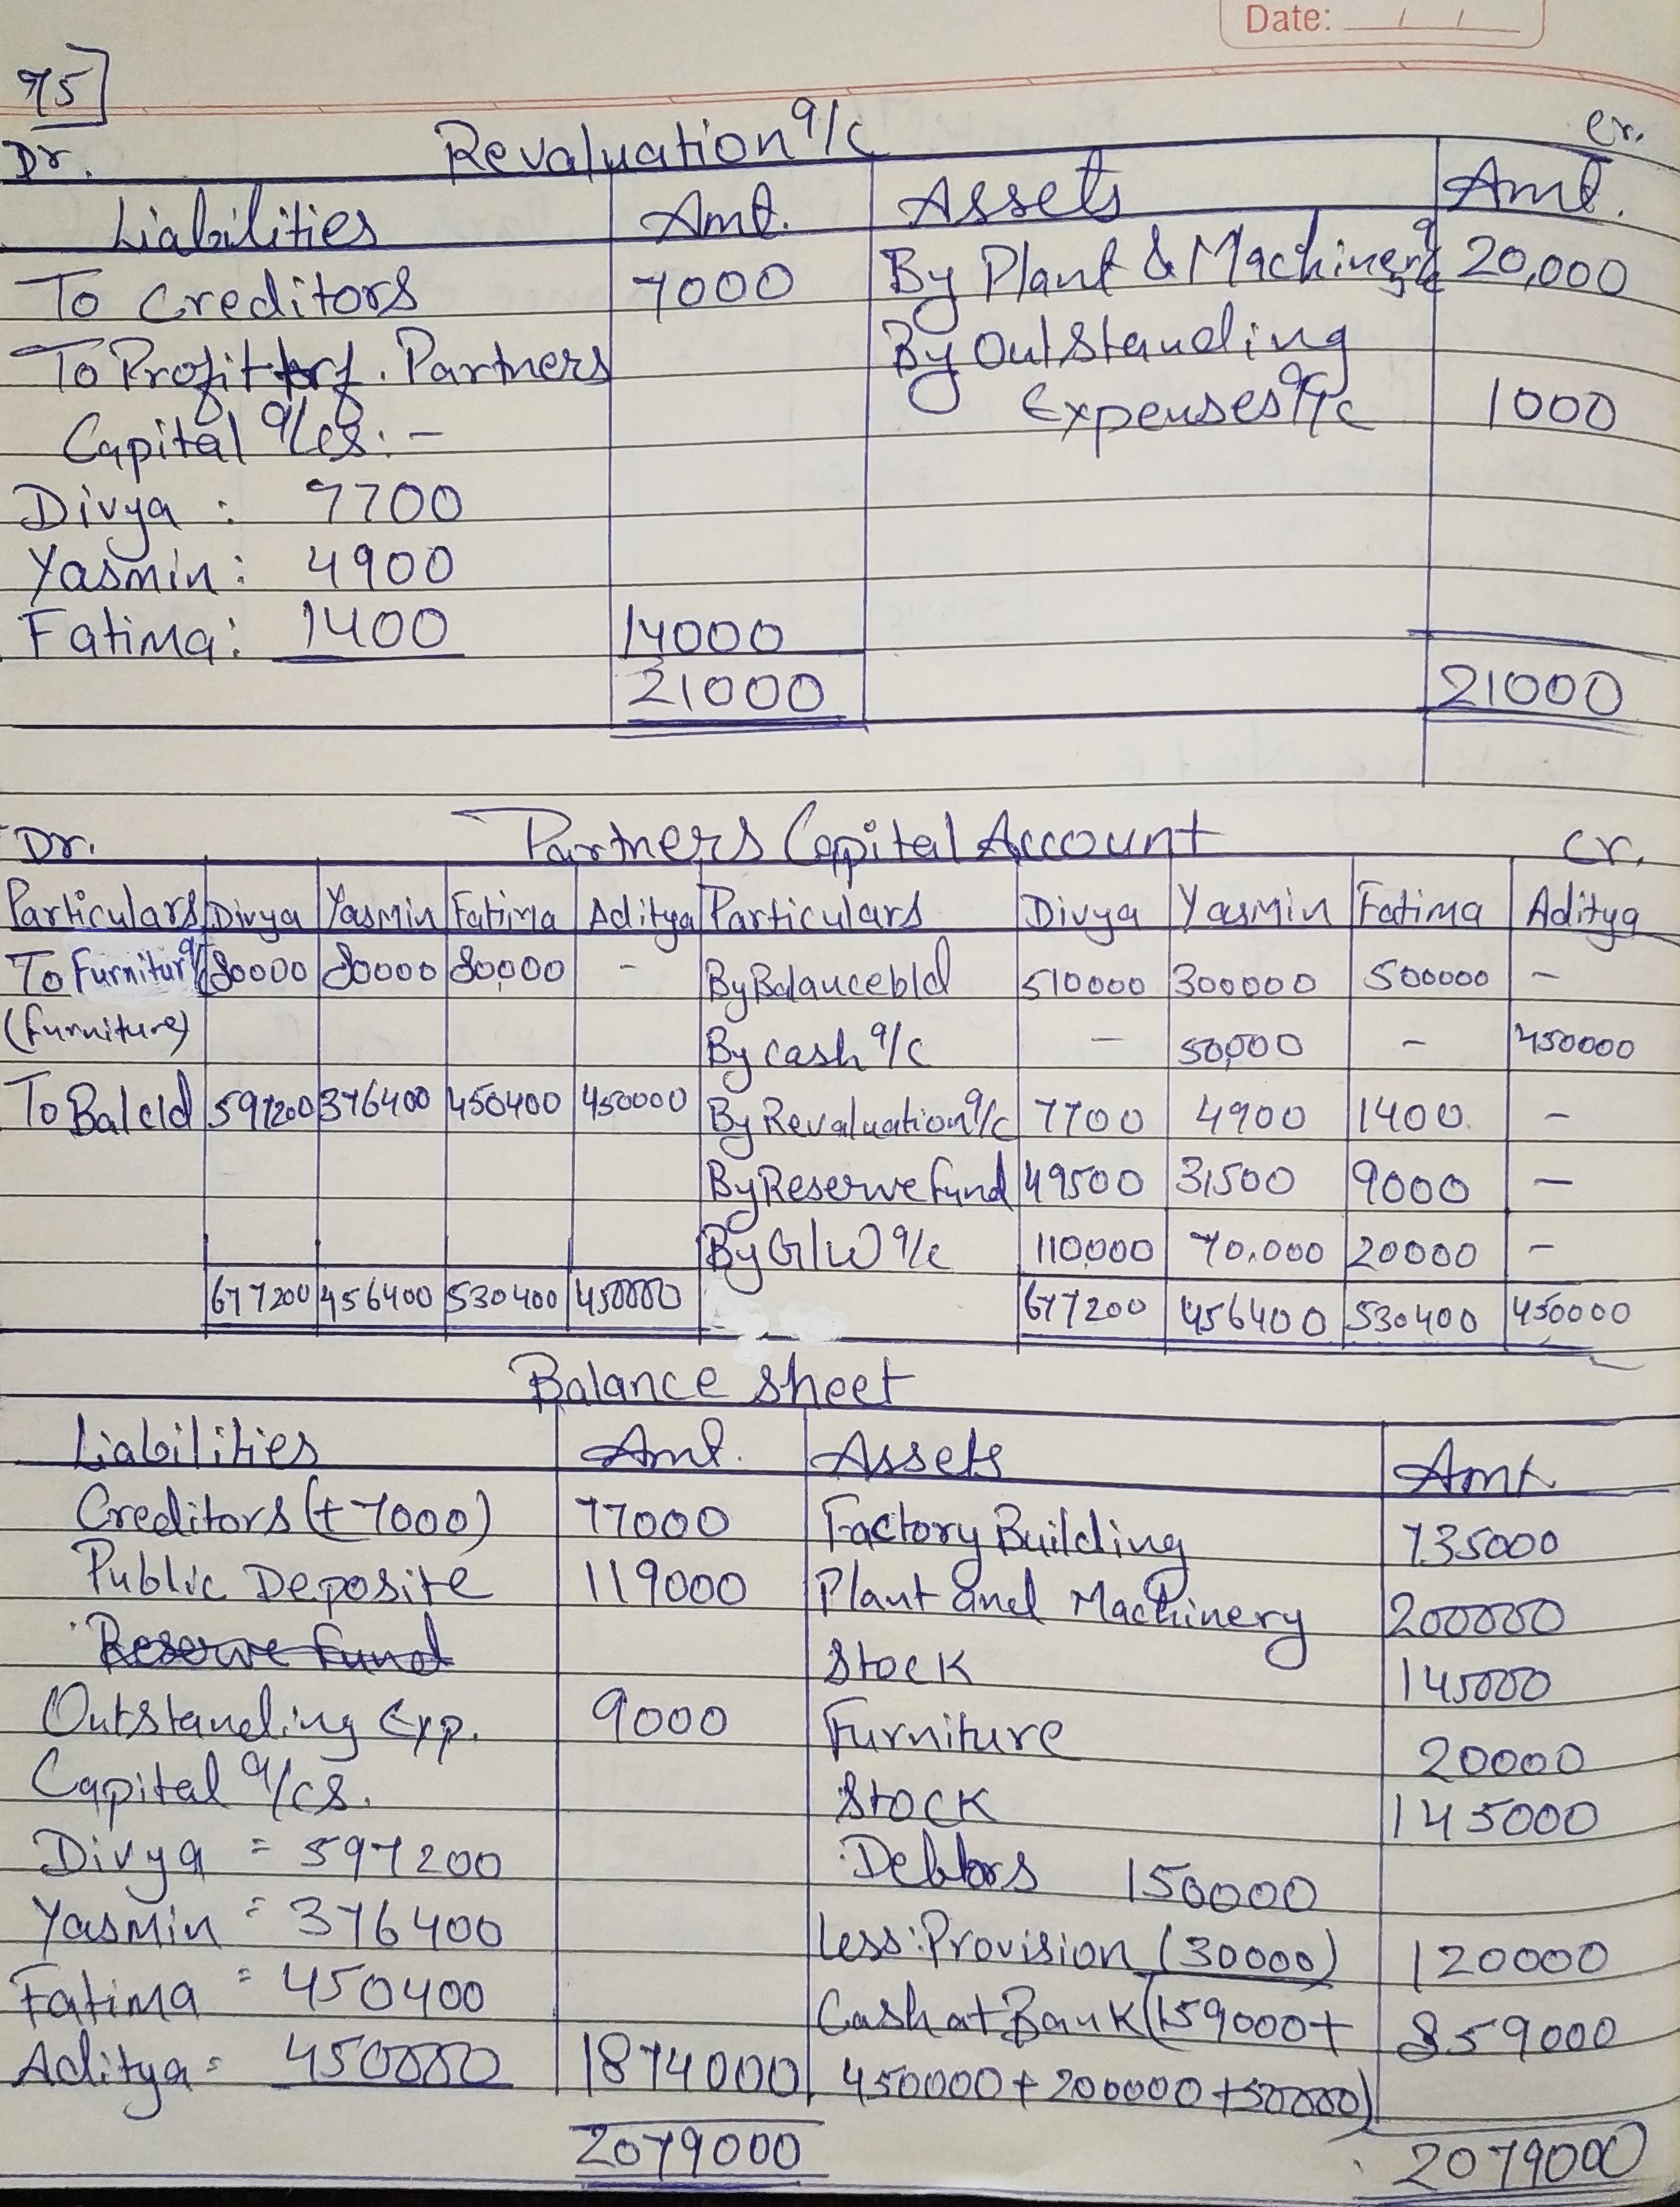 Date: / /
75]
Dr. Revaluation a/c Cr.
Liabilities Amt. Assets Amt.
To Creditors 7000 By Plant & Machinery a/c 20,000
To Profit trf. Partners By Outstanding
Capital a/cs: - Expenses a/c 1000
Divya : 7700
Yasmin : 4900
Fatima : 1400 14000
21000 21000
Dr. Partners Capital Account Cr.
Particulars Divya Yasmin Fatima Aditya Particulars Divya Yasmin Fatima Aditya
To Furniture a/c 80000 80000 80,000 - By Balance b/d 510000 300000 500000 -
(furniture) By cash a/c - 50,000 - 450000
To Bal c/d 597200 376400 450400 450000 By Revaluation a/c 7700 4900 1400. -
By Reserve fund 49500 31,500 9000 -
By G/W a/c 110,000 70,000 20000 -
677200 456400 530400 450000 677200 456400 530400 450000
Balance sheet
Liabilities Amt. Assets Amt.
Creditors (+7000) 77000 Factory Building 735000
Public Deposite 119000 Plant and Machinery 200000
Reserve fund Stock 145000
Outstanding Exp. 9000 Furniture 20000
Capital a/cs. Stock 145000
Divya = 597200 Debtors 150000
Yasmin = 376400 Less: Provision (30000) 120000
Fatima = 450400 Cash at Bank (159000+ 859000
Aditya = 450000 1874000 450000 + 200000 + 50000)
2079000 2079000